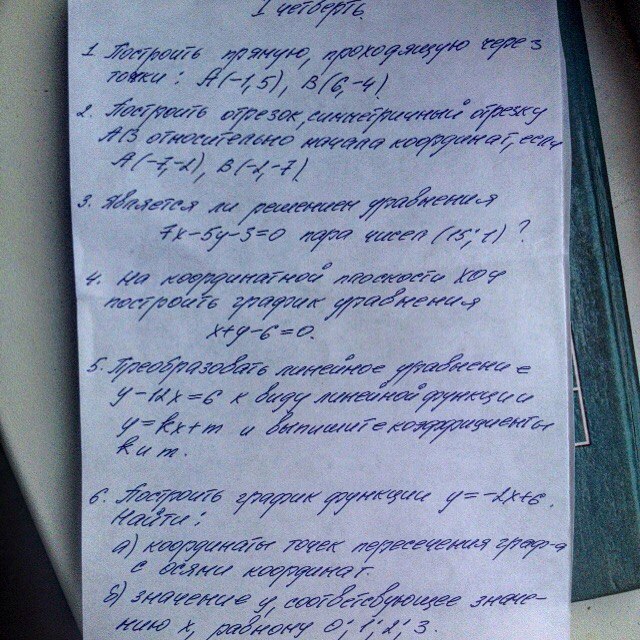 I четверть.
1. Построить прямую, проходящую через
точки: А(-1,5), В(6,-4)
2. Построить отрезок, симметричный отрезку
АВ относительно начала координат, если
А(-7,-2), В(-2,-7)
3. Является ли решением уравнения
7х-5у-3=0 пара чисел (15; 1) ?
4. На координатной плоскости ХОУ
построить график уравнения
х+у-6=0.
5. Преобразовать линейное уравнение
у-12х=6 к виду линейной функции
у=kx+m и выпишите коэффициенты
k и m.
6. Построить график функции у=-2х+6.
Найти:
а) координаты точек пересечения граф-а
с осями координат.
б) значение у, соответствующее значе-
нию х, равному 0; 1; 2; 3.